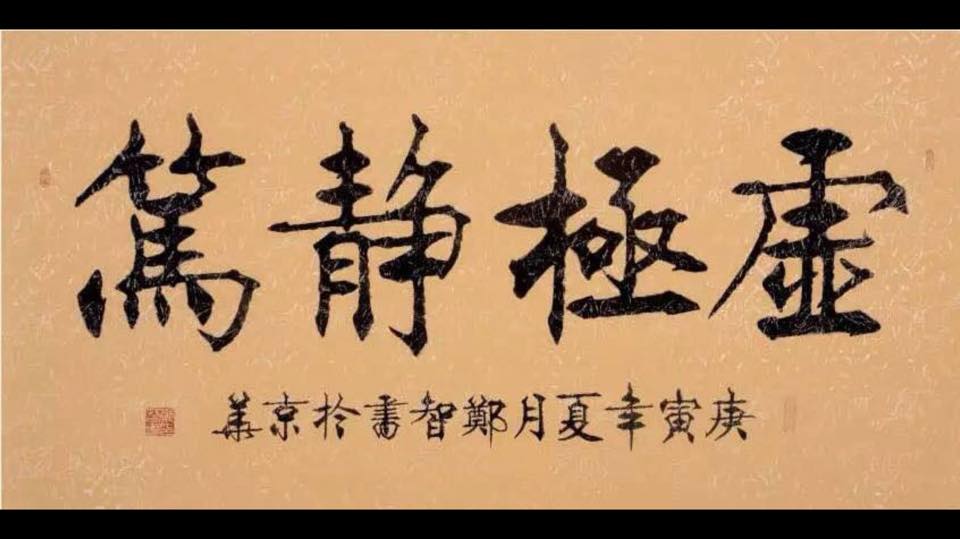 虛極静篤
庚寅年夏月鄭智書於京華